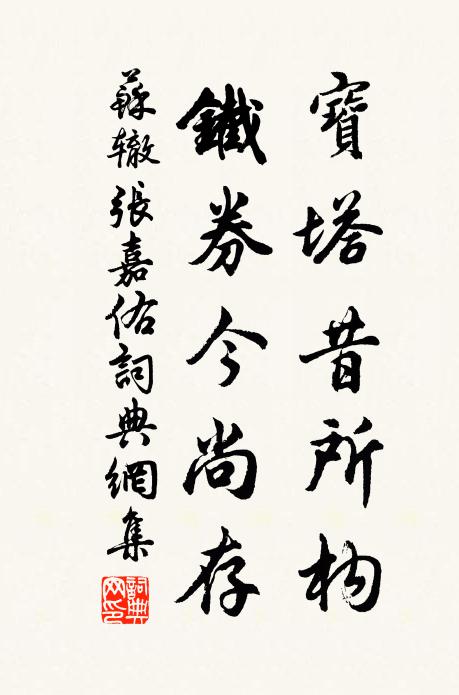 寶塔昔所构
鐵券今尚存
蘇辙張嘉佑詞典網集
詞典网印